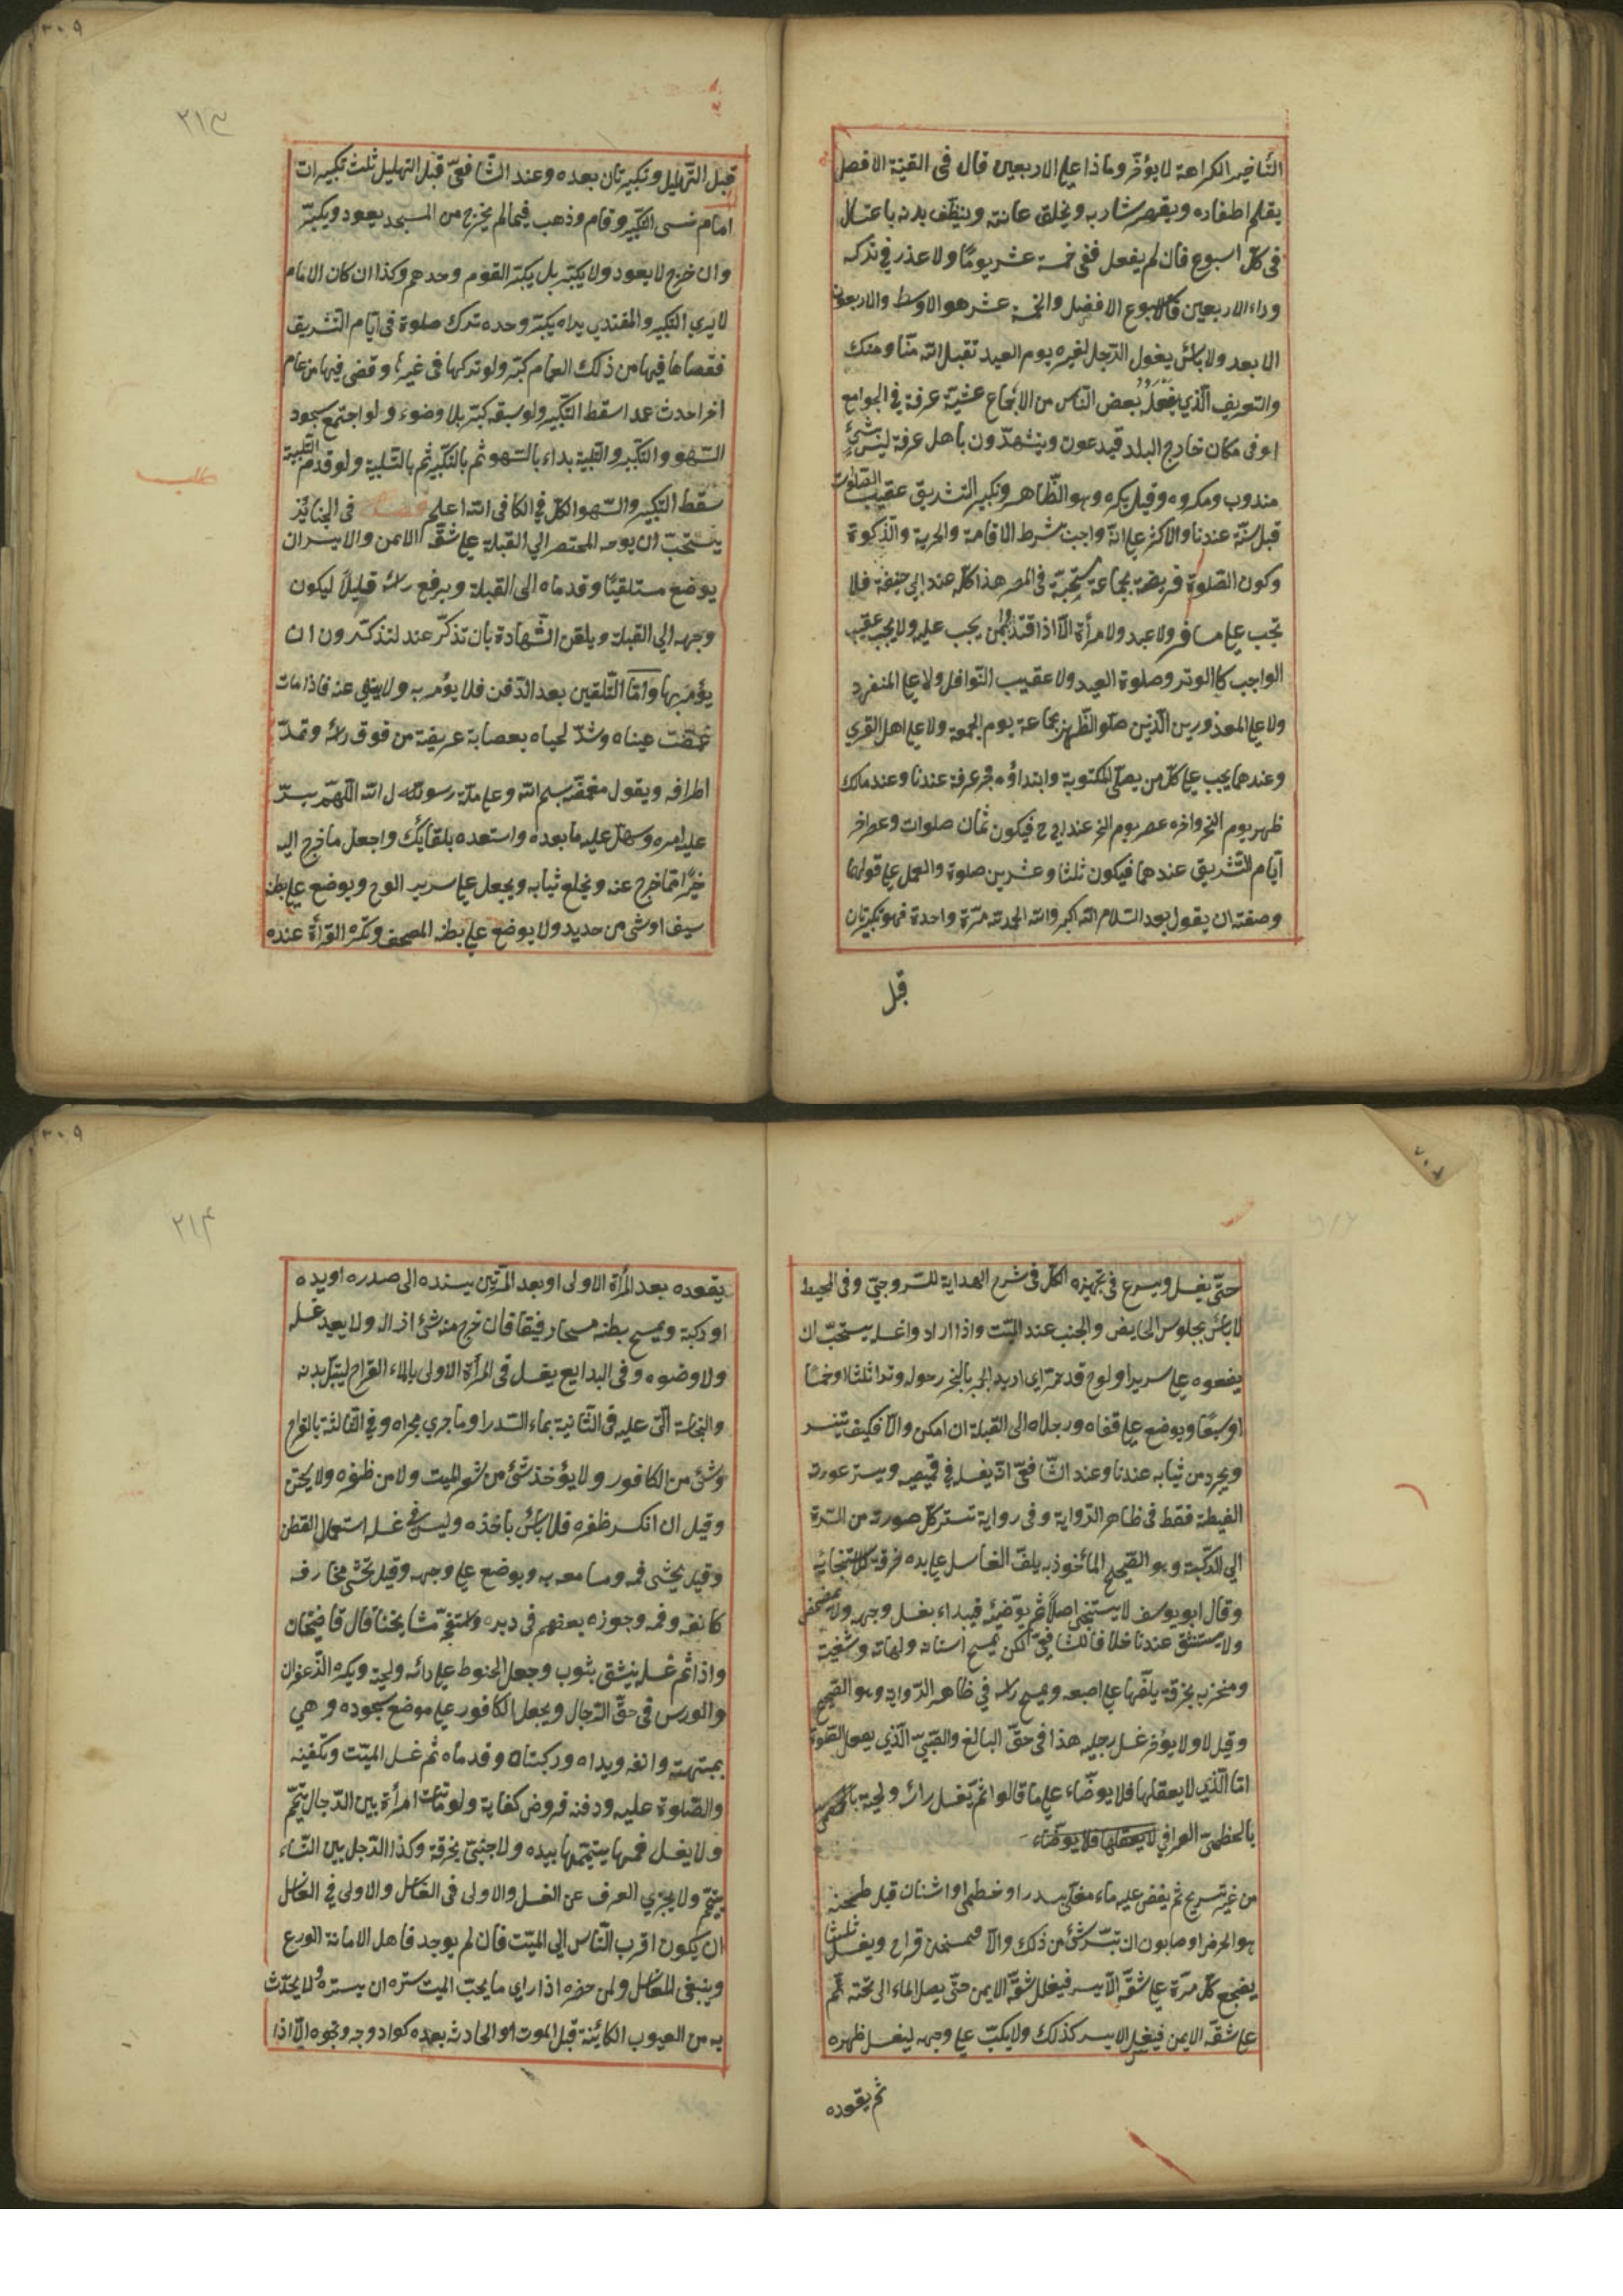 التأخير الكراهة لا يؤخر وماذا على الاربعين قال فى القنية الافضل
يقلم اظفاره ويقص شاربه ويحلق عانته وينظف بدنه باغتسال
فى كل اسبوع فان لم يفعل ففى خمسة عشر يوما ولا عذر فى تركه
وراء الاربعين فالاسبوع الافضل والخمسة عشر هو الاوسط والاربعون
الابعد ولا بأس يقول الرجل لغيره يوم العيد تقبل الله منا ومنك
والتعريف الذي يفعله بعض الناس من الاجتماع عشية عرفة فى الجوامع
او فى مكان خارج البلد فيدعون ويتشهدون باهل عرفة ليس بشئ
مندوب ومكروه وقيل يكره وهو الظاهر وتكبير التشريق عقيب الصلوات
قبل سنة عندنا والاكثر على انه واجب بشرط الاقامة والحرية والذكورة
وكون الصلوة فريضة بجماعة مستحبة فى المصر هذا كله عند ابى حنيفة فلا
تجب على مسافر ولا عبد ولا مرأة الا اذا اقتدوا بمن يجب عليه ولا يجب عقيب
الواجب كالوتر وصلوة العيد ولا عقيب النوافل ولا على المنفرد
ولا على المعذورين الذين صلو الظهر بجماعة يوم الجمعة ولا على اهل القرى
وعندهما يجب على كل من يصلى المكتوبة وابتداؤه فجر عرفة عندنا وعند مالك
ظهر يوم النحر واخره عصر يوم النحر عند ابى ح فيكون ثمان صلوات وعصر اخر
ايام التشريق عندهما فيكون ثلثا وعشرين صلوة والعمل على قولهما
وصفته ان يقول بعد السلام الله اكبر والله الحمد لله مرة واحدة فهو تكبيرتان
قبل
٢١٣
قبل التهليل وتكبيرتان بعده وعند الشافعى قبل التهليل ثلث تكبيرات
امام نسى التكبير وقام وذهب فيما لم يخرج من المسجد يعود ويكبر
وان خرج لا يعود ولا يكبر بل يكبر القوم وحدهم وكذا ان كان الامام
لا يرى التكبير والمقتدي يراه يكبر وحده ترك صلوة فى ايام التشريق
فقضاها فيها من ذلك العام كبر ولو تركها فى غيرها وقضى فيها من عام
اخر احدث عمدا سقط التكبير ولو سبقه كبر بلا وضوء ولو اجتمع سجود
السهو والتكبير والتلبية بداء بالسهو ثم بالتكبير ثم بالتلبية ولو قدم التلبية
سقط التكبير والسهو الكل فى الكافى الله اعلم فصل فى الجنائز
يستحب ان يوجه المحتضر الى القبلة على شقه الايمن والايسر ان
يوضع مستلقيا وقدماه الى القبلة ويرفع رأسه قليلا ليكون
وجهه الى القبلة ويلقن الشهادة بان تذكر عنده ليتذكر دون ان
يؤمر بها واما التلقين بعد الدفن فلا يؤمر به ولا ينهى عنه فاذا مات
غمضت عيناه وشد لحياه بعصابة عريضة من فوق رأسه وتمد
اطرافه ويقول مغمضه بسم الله وعلى ملة رسول الله اللهم يسر
عليه امره وسهل عليه ما بعده واسعده بلقائك واجعل ما خرج اليه
خيرا مما خرج عنه ويخلع ثيابه ويجعل على سرير الوح ويوضع على بطنه
سيف او شئ من حديد ولا يوضع على بطنه المصحف وتكره القرأة عنده
حتى يغسل ويسرع فى تجهيزه الكل فى شرح الهداية للسروجى وفى المحيط
لا بأس بجلوس الحايض والجنب عند الميت واذا ارادوا غسله يستحب ان
يضعوه على سرير او لوح قد جمر اى ادير المجمر بالبخر حوله وترا ثلثا او خمسا
او سبعا ويوضع على قفاه ورجلاه الى القبلة ان امكن والا فكيف تيسر
ويجرد من ثيابه عندنا وعند الشافعى انه يغسل فى قميصه ويستر عورته
الغليظة فقط فى ظاهر الرواية وفى رواية تستر كل عورته من السرة
الى الركبة وهو الصحيح المأخوذ به يلف الغاسل على يده خرقة لاستنجائه
وقال ابو يوسف لا يستنجى اصلا ثم يوضئه فيبداء بغسل وجهه ولا يمضمض
ولا يستنشق عندنا خلافا للشافعى لكن يمسح اسنانه ولهاته وشفتيه
ومنخريه بخرقة يلفها على اصبعه ويمسح رأسه فى ظاهر الرواية وهو الصحيح
وقيل لا ولا يؤخر غسل رجليه هذا فى حق البالغ والصبى الذي يعقل الصلوة
اما الذي لا يعقلها فلا يوضاء على ما قالوا ثم يغسل رأسه ولحيته
بالخطمى العراقى لا يعقلها فلا يوضاء
من غير تسريح ثم يفض عليه ماء مغلى بسدر او خطمى او اشنان قبل طحنه
هو الحرض او صابون ان تيسر شئ من ذلك والا فمسخن قراح ويغسل ثلثا
يضجع كل مرة على شقه الايسر فيغسل شقه الايمن حتى يصل الماء الى تحته ثم
على شقه الايمن فيغسل الايسر كذلك ولا يكب على وجهه ليغسل ظهره
ثم يقعده
٢١٤
يقعده بعد المرأة الاولى او بعد المرتين يسنده الى صدره او يده
او ركبته ويمسح بطنه مسحا رفيقا فان خرج منه شئ ازاله ولا يعيد غسله
ولا وضوءه وفى البدايع يغسل فى المرأة الاولى بالماء القراح ليبتل بدنه
والنجاسة التى عليه فى الثانية بماء السدر او ما جرى مجراه وفى الثالثة بالقراح
وشئ من الكافور ولا يؤخذ شئ من شعر الميت ولا من ظفره ولا يختن
وقيل ان انكسر ظفره فلا بأس باخذه وليس فى غسله استعمال القطن
وقيل يحشى فمه ومسامعه به ويوضع على وجهه وقيل تحشى مخارقه
كانفه وفمه وجوزه بعضهم فى دبره واستقبحه مشايخنا قال قاضيخان
واذا تم غسله ينشف بثوب وجعل الحنوط على رأسه ولحيته ويكره الزعفران
والورس فى حق الرجال ويجعل الكافور على موضع سجوده وهى
جبهته وانفه ويداه وركبتاه وقدماه ثم غسل الميت وتكفينه
والصلوة عليه ودفنه فروض كفاية ولو ماتت امرأة بين الرجال تيمم
ولا يغسل فمحرمها يتيممها بيده ولاجنبى بخرقة وكذا الرجل بين النساء
ييمم ولا يجزي الغرق عن الغسل والاولى فى الغاسل والاولى فى الغاسل
ان يكون اقرب الناس الى الميت فان لم يوجد فاهل الامانة الورع
وينبغى للغاسل ولمن حضره اذا راى ما يحب الميت ستره ان يستره ولا يحدث
به من العيوب الكائنة قبل الموت او الحادثة بعده كسواد وجه ونحوه الا اذا